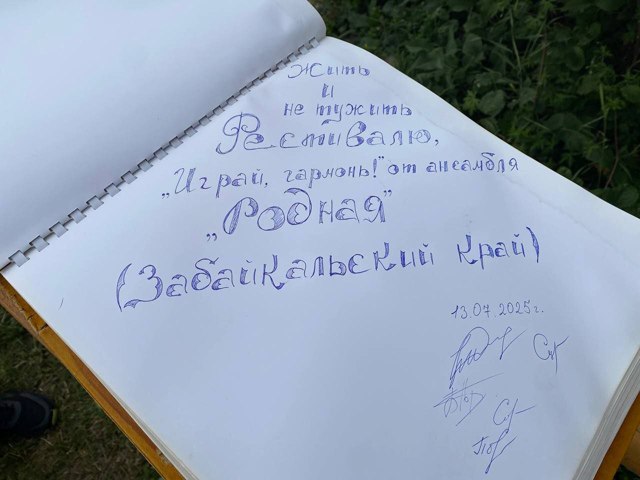 Жить
и
не тужить
Фестивалю,
„Играй, гармонь!" от ансамбля
„Родная"
(Забайкальский край)
13.07.2025г.